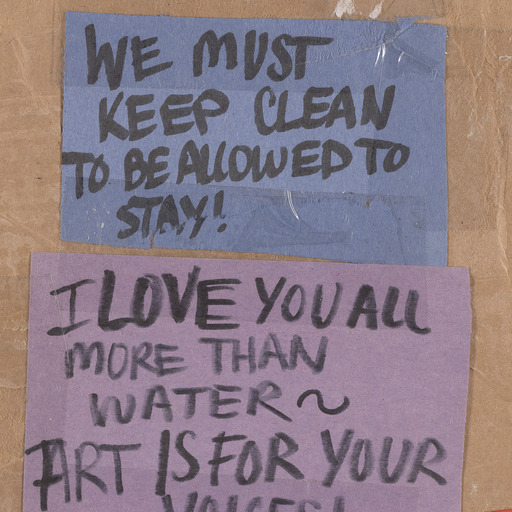 WE MUST
KEEP CLEAN
TO BE ALLOWED TO
STAY!
I LOVE YOU ALL
MORE THAN
WATER ~
ART IS FOR YOUR
VOICES!